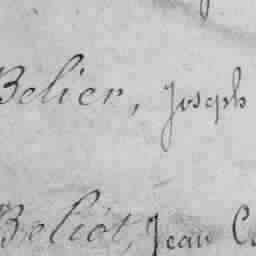 Belier, Joseph
Beliot, Jean